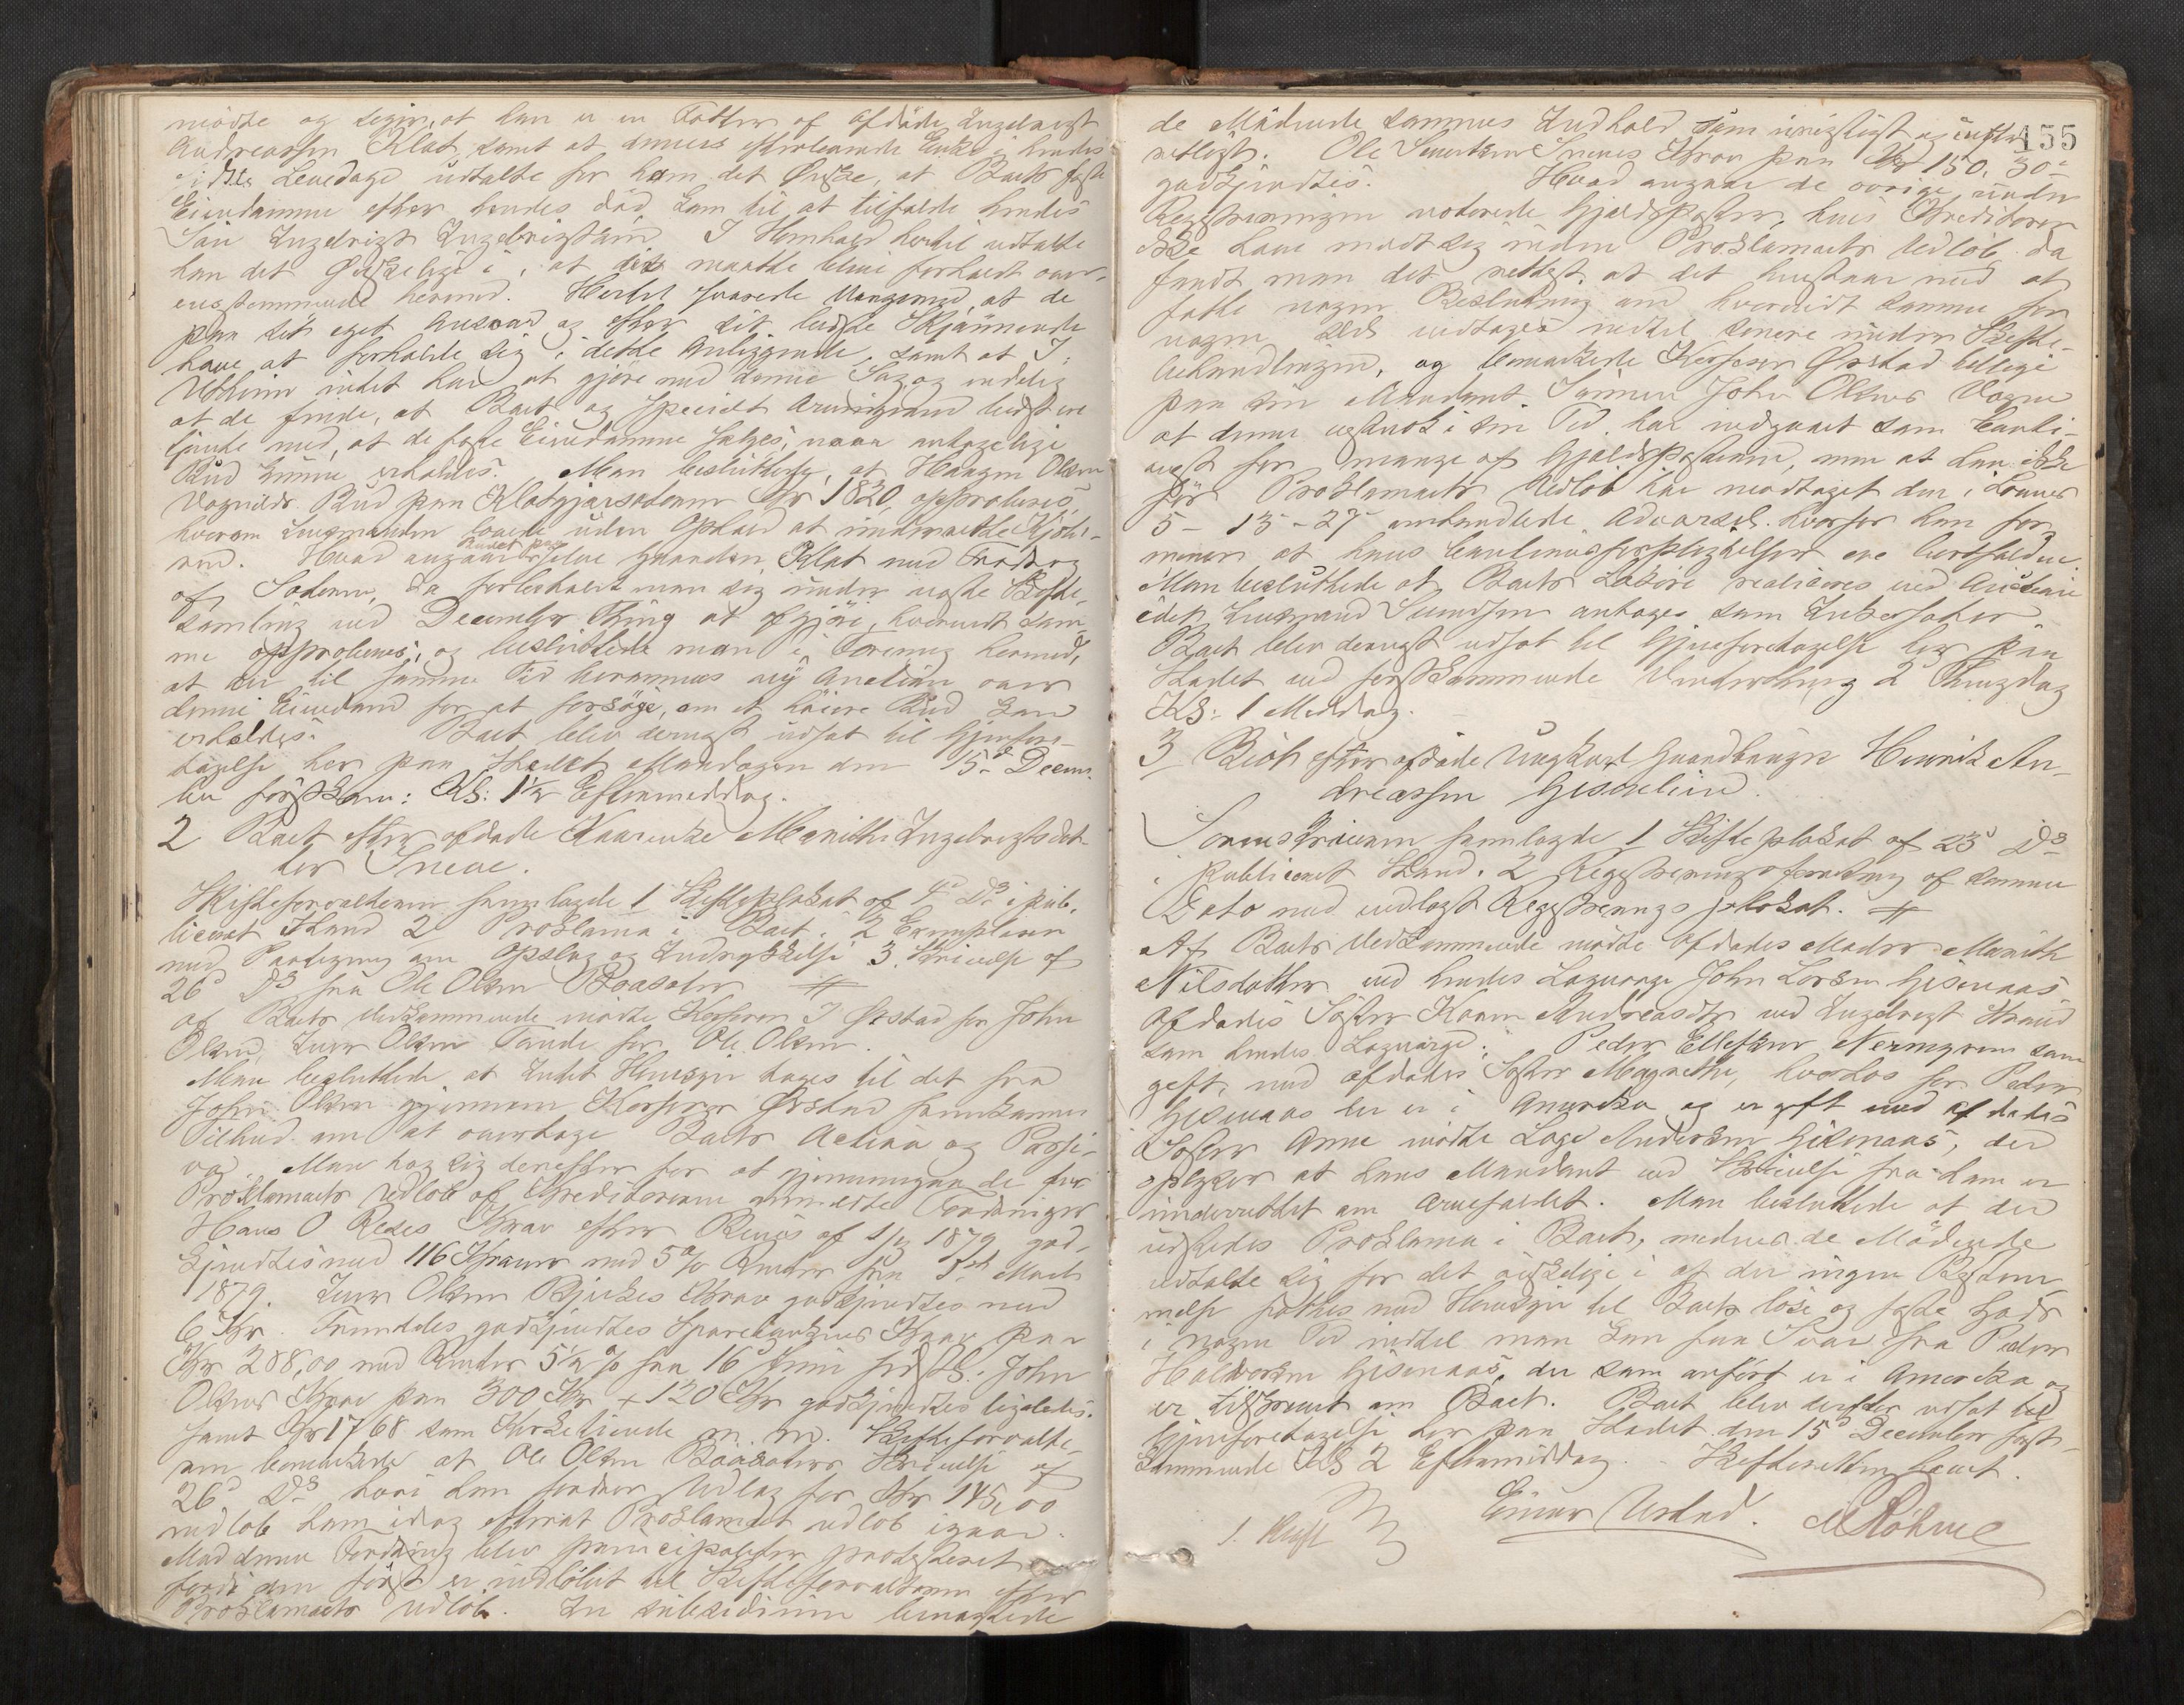 mödte og sagde, at han er en Fætter af afdöde Ingebrigt
Andreassen Klet, samt at dennes efterlevende Enke i hendes
sidste Levedage udtalte for ham det Ønske, at Boets faste
Eiendomme efter hendes död kom til at tilfalde hendes
Sön Ingebrigt Ingebrigtsen. I Henhold hertil udtalte
han det Ønskelige i, at det maatte blive forholdt over-
ensstemmende hermed. Hertil svarede Værgerne, at de
paa sit eget Ansvar og efter sit bedste Skjönnende
have at forholde sig i dette Anliggende, samt at I.
intet har at gjöre med denne Sag, og endelig
at de finde, at Boet og specielt Arvingerne bedst ere
tjente med, at de faste Eiendomme sælges, naar antagelige
Bud kunne erholdes. Man besluttede, at Haagen Olsen
Vognilds Bud paa Kletgjærsodden Kr 1820, approberes,
hvorom Lensmanden lovede uden Ophold at underrette Kjöbe-
ren. Hvad angaar Budet paa selve Gaarden Klet med Fradrag
af Sodden, da forbeholdt man sig under næste Skifte-
samling ved December Thing at afgjöre, hvorvidt sam-
me approberes, og besluttede man i Forening hermed,
at der til samme Tid berammes ny Auction over
denne Eiendom for at forsöge, om et höiere Bud kan
erholdes. Boet blev dernæst udsat til Gjenfore-
tagelse her paa Stedet Mandagen den 15de Decem-
ber förstkom: Kl: 1½ Eftermiddag.
2 Boet efter afdöde Kaarenke Marith Ingebrigtsdat-
ter Sneve.
Skifteforvalteren fremlagde 1 Skifteplakat af 4d Ds i pub-
liceret Stand 2 Proklama i Boet i 2 Exemplarer
med Paategning om Opslag og Indrykkelse 3. Skrivelse af
26d Ds fra Ole Olsen Baasater #
Af Boets Vedkommende mödte Kasserer I Ørstad for John
Olsen, Iver Olsen Tande for Ole Olsen.
Man besluttede, at Intet Hensyn tages til det fra
John Olsen gjennem Kasserer Ørstad fremkomne
Tilbud om at overtage Boets Activa og Passi-
va. Man tog sig derefter for at gjennemgaa de för
Proklamaets Udlöb af Kreditorerne anmeldte Fordringer
Hans O Rises Krav efter Bevis af 1/4 1879 god-
kjendtes med 116 Kroner med 5% Renter fra 5te Marts
1879. Iver Olsen Bjerkes Krav godkjendtes med
6 Kr. Fremdeles godkjendtes Sparebankens Krav paa
Kr 288,00 med Renter 5½ % fra 16d Juni sidstl. John
Olsens Krav paa 300 Kr + 120 Kr godkjendtes ligeledes.
samt Kr 17 68 som Kirketiende m. m. Skifteforvalte-
ren bemærkede at Ole Olsen Baasaters Skrivelse af
26d Ds hvori han fordrer Udlæg for Kr 145,00
indlöb ham idag efterat Proklamaet udlöb igaar.
Mod denne Fordring blev principaliter protesteret
fordi den först er indlöbet til Skifteforvalteren efter
Proklamaets Udlöb. In subsidium benægtede
155
de Mödende sammes Indhold som urigtigt og uefter-
retligt. Ole Sneves Krav paa Kr 150, 30
godkjendtes. Hvad angaar de övrige under
Registreringen noterede Gjældsposter, hvis Kreditorer
ikke have meldt sig inden Proklamaets Udlöb da
fandt man det rettest, at det henstaar med at
fatte nogen Beslutning om hvorvidt samme for
nogen Del vedtages indtil senere under Skifte-
behandlingen, og bemærkede Kasserer Ørstad tillige
paa sin Mandant John Olsens Vegne
at denne vistnok i sin Tid har indgaaet som Cauti-
onist for mange af Gjældsposterne, men at han ikke
för Proklamaets Udlöb har modtaget den i Lovens
5 – 13 – 27 omhandlede Advarsel, hvorfor han for-
mener at hans Cautionsforpligtelser ere bortfaldne.
Man besluttede at Boets Lösöre realiseres ved Auction
idet Lensmand antages som Inkassator.
Boet blev dernæst udsat til Gjenforetagelse her paa
Stedet ved förstkommende Vinterthing 2 Thingdag
Kl: 1 Middag.
3 Boet efter afdöde Ungkarl Gaardbruger Henrik An-
dreassen Gisnalien.
Sorenskriveren fremlagde 1 Skifteplakat af 23d Ds
i publiceret Stand. 2 Registreringsforretning af samme
Dato med indlagt Registrerings plakat. #
Af Boets Vedkommende mödte Afdödes Moder Marith
Nilsdatter ved hendes Laugværge John Larsen Gisnaas
Afdödes Söster Karen Andreasdtr ved Ingebrigt Strand
som hendes Laugværge; Peder Ellefsen som
gift med afdödes Söster Magrethe, hvorhos for Peder
Gisnaas der er i Amerika og er gift med afdödes
Söster Anne mödte Lage Andersen Gisnaas, der
oplyser at hans Mandant ved Skrivelse fra ham er
underrettet om Arvefaldet. Man besluttede at der
udstedes Proklama i Boet, medens de Mödende
udtalte sig for det önskelige i at der ingen Bestem-
melse fattes med Hensyn til Boets löse og faste Gods
i nogen Tid indtil man kan faa Svar fra Peder
Halvorsen Gisnaas, der som anfört er i Amerika og
er tilskrevet om Boet. Boet blev derefter udsat til
Gjenforetagelse her paa Stedet den 15d December först-
kommende Kl 2 Eftermiddag. – Skifteretten hævet.
Einar M Röhme